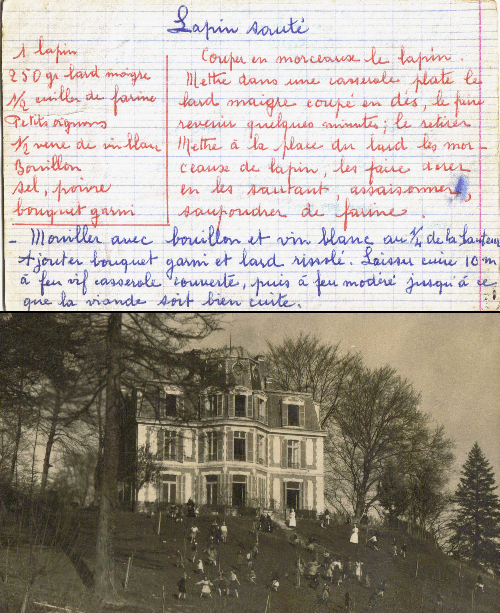 Lapin sauté
1 lapin
250 gr lard maigre
1/2 cuiller de farine
Petits oignons
1/2 verre de vin blanc
Bouillon
sel, poivre
bouquet garni
Couper en morceaux le lapin.
Mettre dans une casserole plate le
lard maigre coupé en dés, le faire
revenir quelques minutes ; le retirer
Mettre à la place du lard les mor-
ceaux de lapin, les faire dorer
en les sautant, assaisonner,
saupoudrer de farine.
- Mouiller avec bouillon et vin blanc au 3/4 de la hauteur
Ajouter bouquet garni et lard rissolé. Laisser cuire 10 m
à feu vif casserole couverte, puis à feu modéré jusqu'à ce
que la viande soit bien cuite.